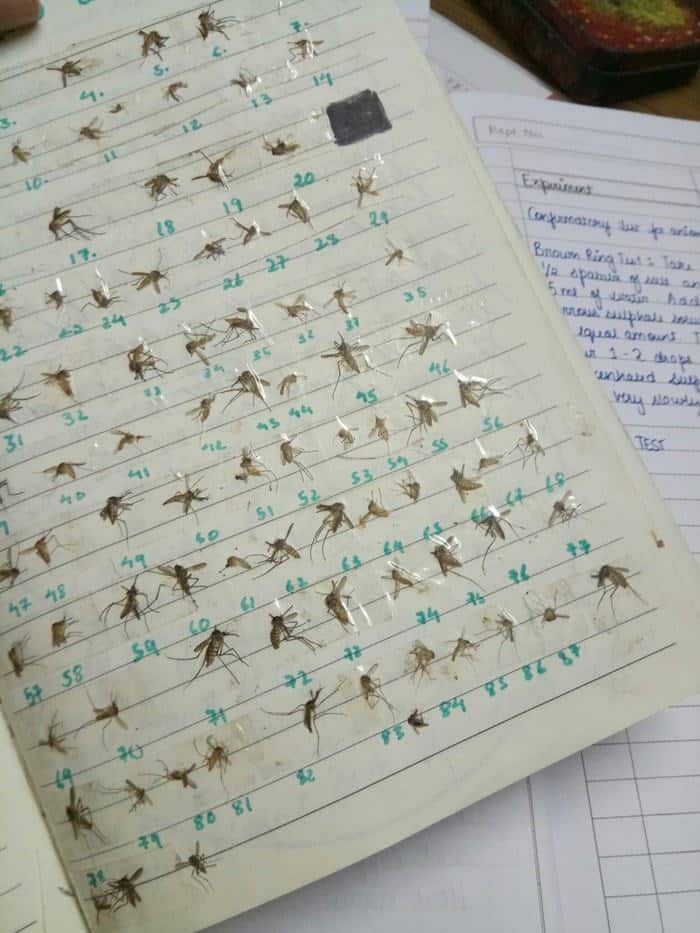 3. 4. 5. 6. 7.
10. 11 12 13 14
17. 18 19 20
22 23 24 25 26 27 28 29
31 32 33 34 35 36 37 35
40 41 42 43 44 45 46
47 48 49 50 51 52 53 54 55 56
57 58 59 60 61 62 63 64 65 66 67 68
69 70 71 72 73 74 75 76 77
78 79 80 81 82 83 84 85 86 87
Expt. No.
Experiment
Confirmatory test for anion
Brown Ring Test : Take
1/2 spatula of salt an
5 ml of water. Add
rrous sulphate solu
equal amount
1-2 drops
very slowly
TEST